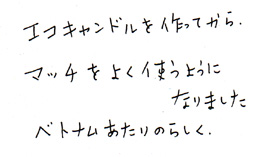 エコキャンドルを作ってから.
マッチをよく使うように
なりました
ベトナムあたりのらしく.